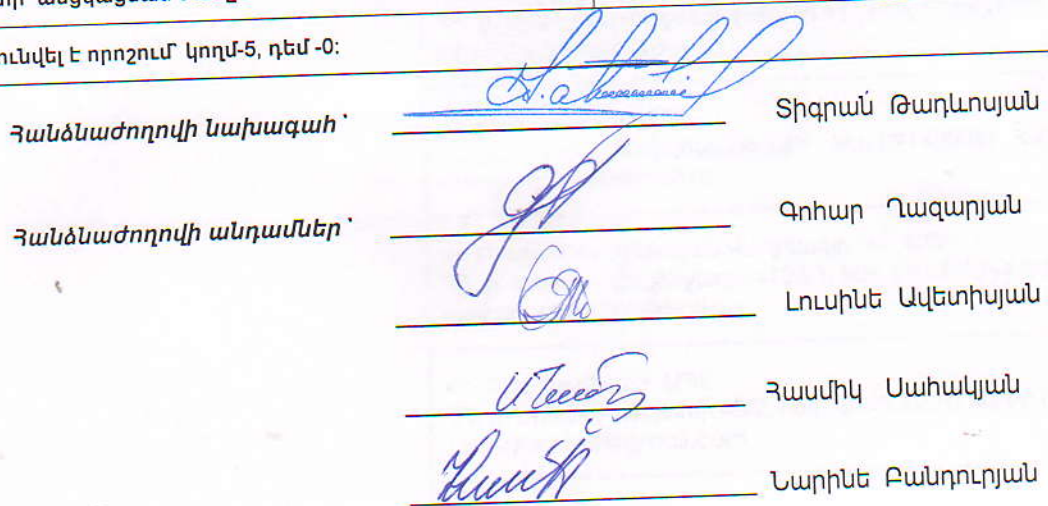 ունվել է որոշում՝ կողմ-5, դեմ -0:
Հանձնաժողովի նախագահ՝ Տիգրան Թադևոսյան
Հանձնաժողովի անդամներ՝ Գոհար Ղազարյան
Լուսինե Ավետիսյան
Հասմիկ Սահակյան
Նարինե Բանդուրյան